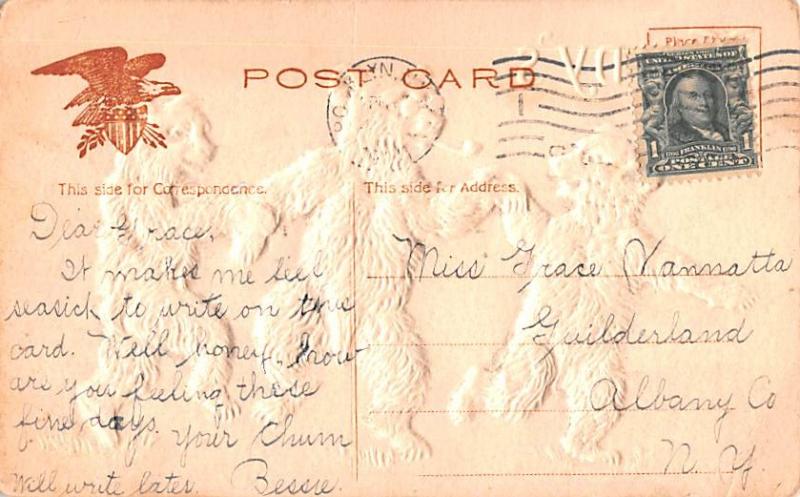 POST CARD
This side for Correspondence.
This side for Address.
Dear Grace,
It makes me feel
seasick to write on this
card. Well honey, how
are you feeling these
fine days.
Your Chum
Will write later. Bessie.
Miss Grace Vannatta
Guilderland
Albany Co
N. Y.
Place
UNITED STATES OF
AMERICA
FRANKLIN
1 POSTAGE 1
ONE CENT
OOKLYN,